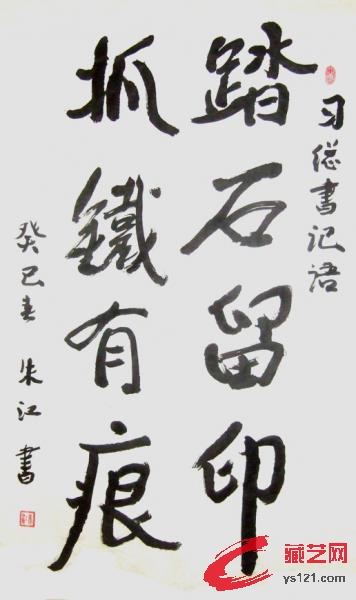 习总书记语
踏石留印
抓鐵有痕
癸巳春 朱江書
藏艺网
ys121.com